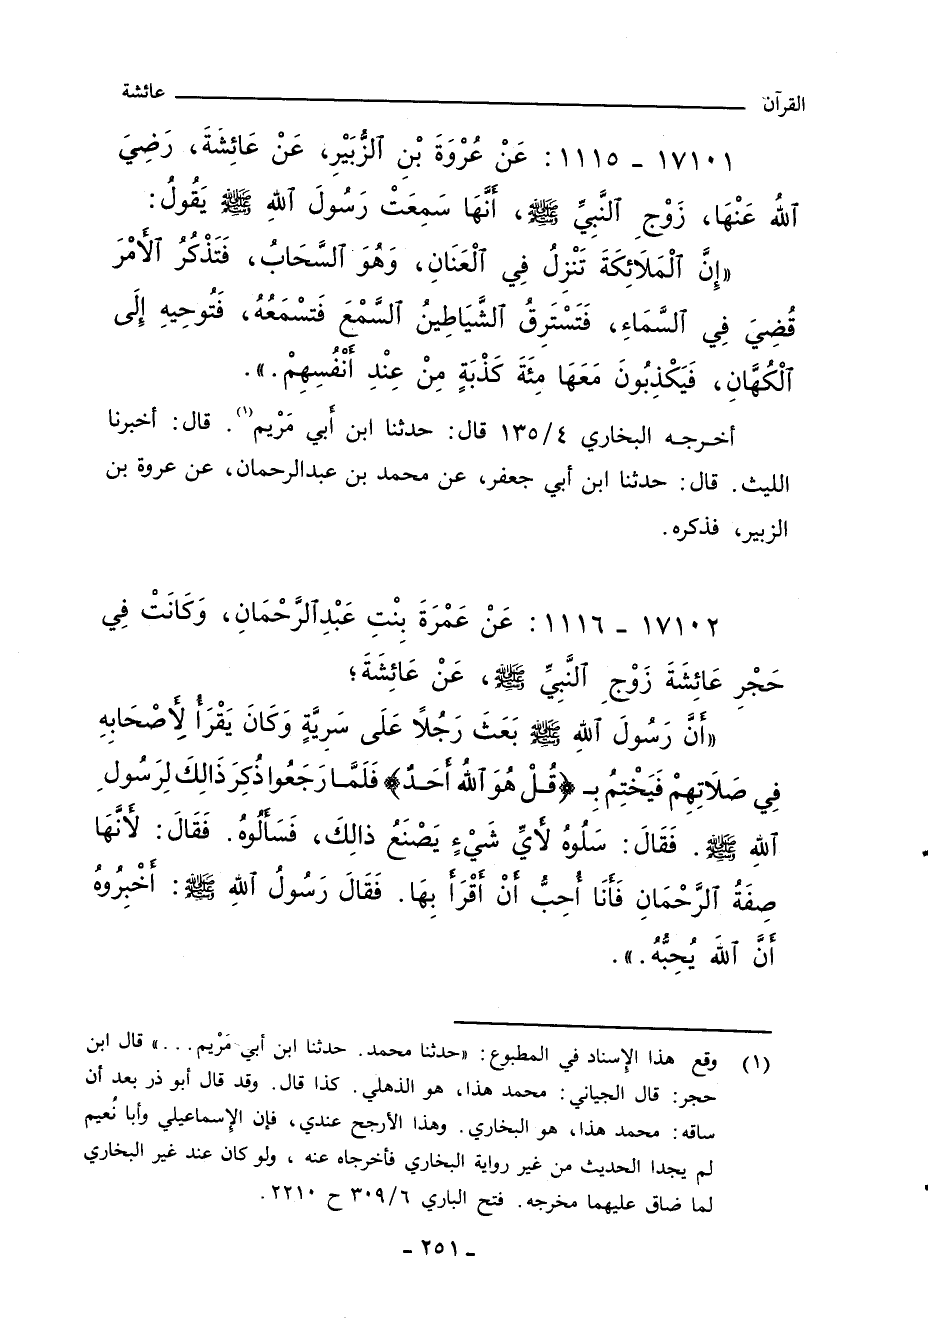 القرآن عائشة
١٧١٠١ - ١١١٥: عَنْ عُرْوَةَ بْنِ ٱلزُّبَيْرِ، عَنْ عَائِشَةَ، رَضِيَ
ٱللهُ عَنْهَا، زَوْجِ ٱلنَّبِيِّ ﷺ، أَنَّهَا سَمِعَتْ رَسُولَ ٱللهِ ﷺ يَقُولُ:
«إِنَّ ٱلْمَلَائِكَةَ تَنْزِلُ فِي ٱلْعَنَانِ، وَهُوَ ٱلسَّحَابُ، فَتَذْكُرُ ٱلْأَمْرَ
قُضِيَ فِي ٱلسَّمَاءِ، فَتَسْتَرِقُ ٱلشَّيَاطِينُ ٱلسَّمْعَ فَتَسْمَعُهُ، فَتُوحِيهِ إِلَى
ٱلْكُهَّانِ، فَيَكْذِبُونَ مَعَهَا مِئَةَ كَذْبَةٍ مِنْ عِنْدِ أَنْفُسِهِمْ.».
أخرجه البخاري ١٣٥/٤ قال: حدثنا ابن أبي مَرْيم(١). قال: أخبرنا
الليث. قال: حدثنا ابن أبي جعفر، عن محمد بن عبدالرحمان، عن عروة بن
الزبير، فذكره.
١٧١٠٢ - ١١١٦: عَنْ عَمْرَةَ بِنْتِ عَبْدِٱلرَّحْمَانِ، وَكَانَتْ فِي
حَجْرِ عَائِشَةَ زَوْجِ ٱلنَّبِيِّ ﷺ، عَنْ عَائِشَةَ؛
«أَنَّ رَسُولَ ٱللهِ ﷺ بَعَثَ رَجُلاً عَلَى سَرِيَّةٍ وَكَانَ يَقْرَأُ لِأَصْحَابِهِ
فِي صَلَاتِهِمْ فَيَخْتِمُ بِـ ﴿قُلْ هُوَ ٱللهُ أَحَدٌ﴾ فَلَمَّا رَجَعُوا ذُكِرَ ذَالِكَ لِرَسُولِ
ٱللهِ ﷺ. فَقَالَ: سَلُوهُ لِأَيِّ شَيْءٍ يَصْنَعُ ذالِكَ، فَسَأَلُوهُ. فَقَالَ: لَأَنَّهَا
صِفَةُ ٱلرَّحْمَانِ فَأَنَا أُحِبُّ أَنْ أَقْرَأَ بِهَا. فَقَالَ رَسُولُ ٱللهِ ﷺ: أَخْبِرُوهُ
أَنَّ ٱللهَ يُحِبُّهُ.».
(١) وقع هذا الإسناد في المطبوع: «حدثنا محمد. حدثنا ابن أبي مَرْيم...» قال ابن
حجر: قال الجياني: محمد هذا، هو الذهلي. كذا قال. وقد قال أبو ذر بعد أن
ساقه: محمد هذا، هو البخاري. وهذا الأرجح عندي، فإن الإسماعيلي وأبا نُعيم
لم يجدا الحديث من غير رواية البخاري فأخرجاه عنه، ولو كان عند غير البخاري
لما ضاق عليهما مخرجه. فتح الباري ٣٠٩/٦ ح ٢٢١٠.
- ٢٥١ -